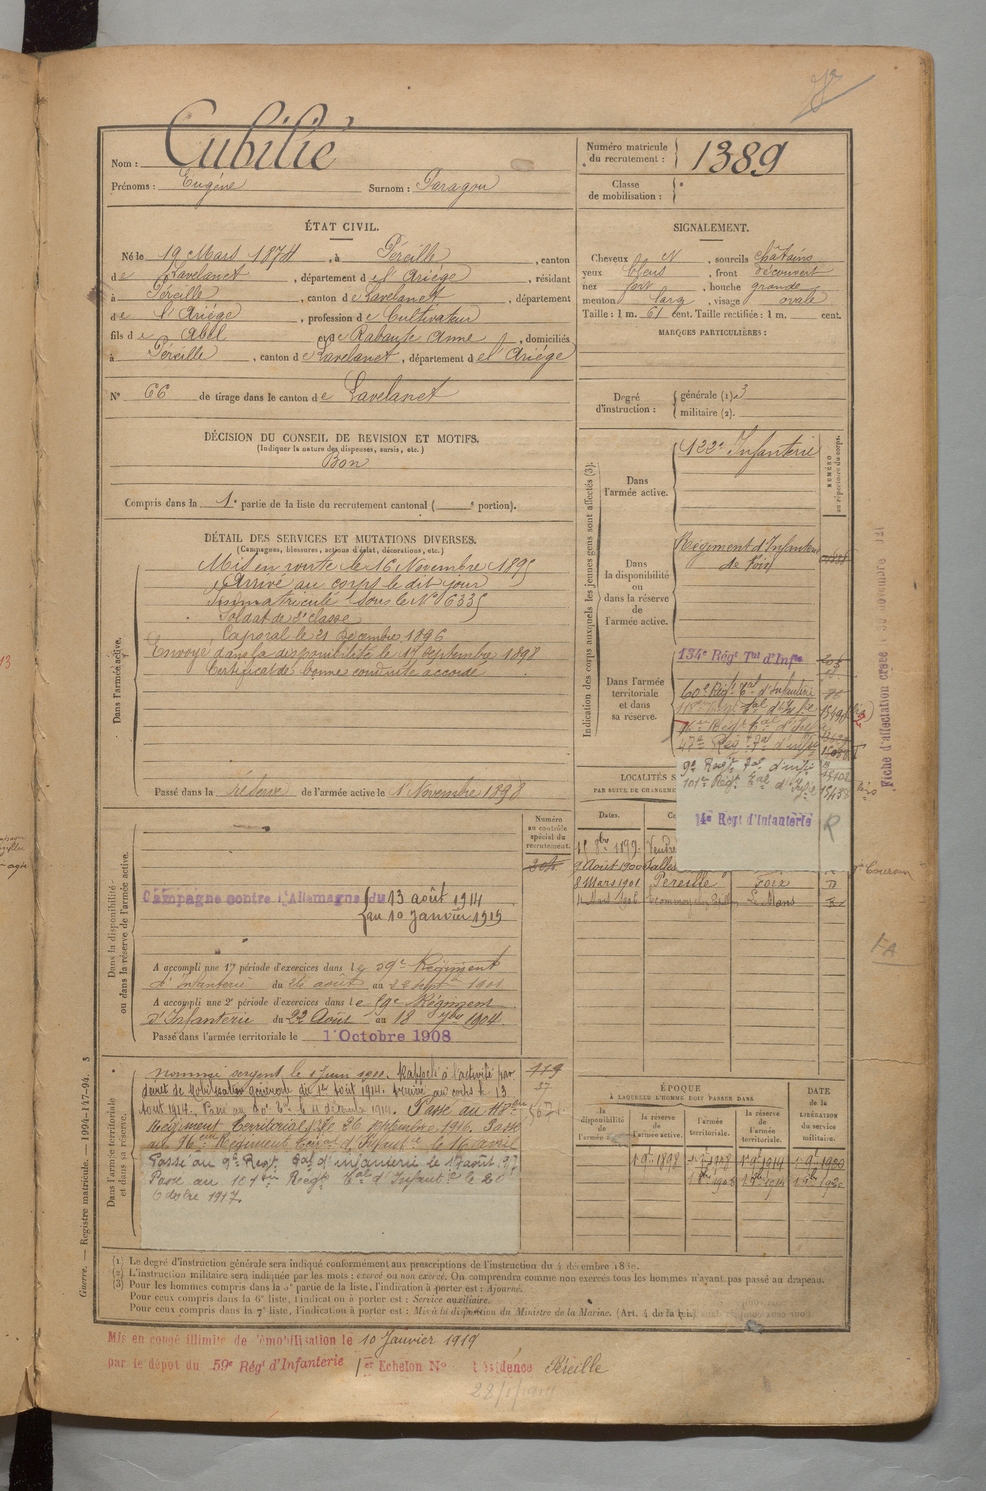 Nom : Cubilié
Prénoms : Eugène Surnom : Paragon
Numéro matricule du recrutement : 1389
Classe de mobilisation :
ÉTAT CIVIL.
Né le 19 Mars 1874, à Péreille, canton
de Lavelanet, département de l'Ariège, résidant
à Péreille, canton de Lavelanet, département
de l'Ariège, profession de Cultivateur
fils de Abel et de Rabaute Anne, domiciliés
à Péreille, canton de Lavelanet, département de l'Ariége
N° 66 de tirage dans le canton de Lavelanet
SIGNALEMENT.
Cheveux N, sourcils châtains
yeux bleus, front découvert
nez fort, bouche grande
menton large, visage ovale
Taille : 1 m. 61 cent. Taille rectifiée : 1 m. cent.
MARQUES PARTICULIÈRES :
Degré d'instruction : générale (1) 3
militaire (2).
DÉCISION DU CONSEIL DE REVISION ET MOTIFS.
(Indiquer la nature des dispenses, sursis, etc.)
Bon
Compris dans la 1e partie de la liste du recrutement cantonal ( e portion).
DÉTAIL DES SERVICES ET MUTATIONS DIVERSES.
(Campagnes, blessures, actions d'éclat, décorations, etc.)
Dans l'armée active.
Mis en route le 16 Novembre 1895
Arrivé au corps le dit jour
Immatriculé sous le N° 6335
Soldat de 2e classe
Caporal le 21 Décembre 1896
Envoyé dans la disponibilité le 17 Septembre 1898
Certificat de bonne conduite accordé
Passé dans la réserve de l'armée active le 1 Novembre 1898
Indication des corps auxquels les jeunes gens sont affectés (3) :
NUMÉRO au répertoire du corps.
Dans l'armée active.
122e Infanterie
Dans la disponibilité ou dans la réserve de l'armée active.
Régiment d'Infanterie
de Foix
Dans l'armée territoriale et dans sa réserve.
134e Régt Tal d'Infie
60e Régt Tal d'Infanterie
47e Rég. Tal d'infie
9e Regt Tal d'infie
101e Régt Tal d'Infie
14e Regt d'Infanterie R
Fiche d'affectation créée
LOCALITÉS S
PAR SUITE DE CHANGEME
Dates.
9 Août 1900
8 Mars 1901 Péreille Foix
Le Mans
Dans la disponibilité ou dans la réserve de l'armée active.
Numéro au contrôle spécial du recrutement.
Campagne contre l'Allemagne du 13 août 1914
au 10 Janvier 1919
A accompli une 1re période d'exercices dans le 59e Régiment
d'Infanterie du 26 août au 22 Sept 1901
A accompli une 2e période d'exercices dans le 59e Régiment
d'Infanterie du 22 Août au 18 7bre 1904.
Passé dans l'armée territoriale le 1 Octobre 1908
Dans l'armée territoriale et dans sa réserve.
Nommé sergent le 1 Juin 1901. Rappelé à l'activité par
décret de Mobilisation générale du 1er Août 1914. Arrivé au corps le 13
Août 1914. Passé au 60e Tal le 11 décembre 1914. Passé au
Régiment territorial le 26 septembre 1916. Passé
au 76eme Régiment territorial d'Infanterie le 16 avril
Passé au 9e Regt Tal d'infanterie le 17 août 1917
Passé au 101ème Régt Tal d'Infantie le 20
Octobre 1917.
ÉPOQUE
À LAQUELLE L'HOMME DOIT PASSER DANS
la disponibilité de l'armée active.
la réserve de l'armée active.
l'armée territoriale.
la réserve de l'armée territoriale.
DATE de la LIBÉRATION du service militaire.
Guerre. — Registre matricule. — 1994-147-94.
(1) Le degré d'instruction générale sera indiqué conformément aux prescriptions de l'instruction du 4 décembre 1889.
(2) L'instruction militaire sera indiquée par les mots : exercé ou non exercé. On comprendra comme non exercés tous les hommes n'ayant pas passé au drapeau.
(3) Pour les hommes compris dans la 5e partie de la liste, l'indication à porter est : Ajourné.
Pour ceux compris dans la 6e liste, l'indication à porter est : Service auxiliaire.
Pour ceux compris dans la 7e liste, l'indication à porter est : Mis à la disposition du Ministre de la Marine. (Art. 4 de la loi.)
Mis en congé illimité de démobilisation le 10 Janvier 1919
par le dépôt du 59e Régt d'Infanterie 1er Echelon N° Résidence Péreille